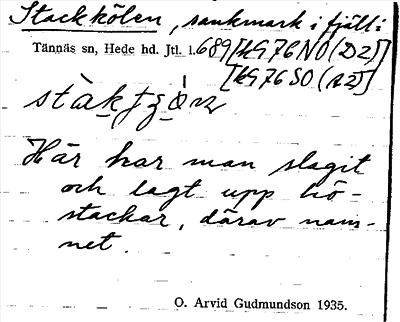 Stackkölen, sankmark i fjäll:
Tännäs sn, Hede hd. Jtl. l. 689 [kG76NO (D2)]
[kG76SO (A2)]
Här har man slagit
och lagt upp hö-
stackar, därav nam-
net.
O. Arvid Gudmundson 1935.